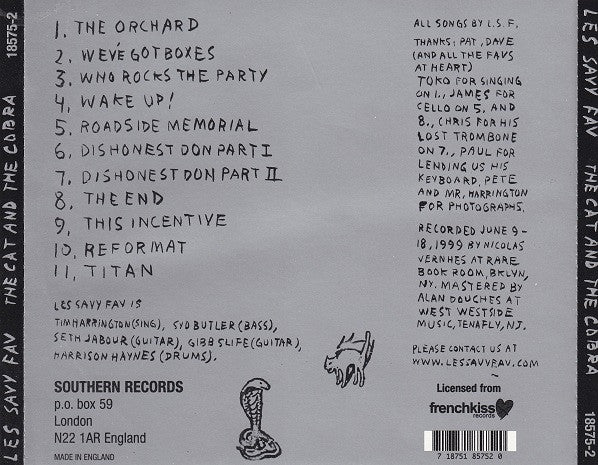 LES SAVY FAV THE CAT AND THE COBRA 18575-2
1. THE ORCHARD
2. WE'VE GOT BOXES
3. WHO ROCKS THE PARTY
4. WAKE UP!
5. ROADSIDE MEMORIAL
6. DISHONEST DON PART I
7. DISHONEST DON PART II
8. THE END
9. THIS INCENTIVE
10. REFORMAT
11. TITAN
LES SAVY FAV IS
TIM HARRINGTON (SING), SYD BUTLER (BASS),
SETH JABOUR (GUITAR), GIBB SLIFE (GUITAR),
HARRISON HAYNES (DRUMS).
SOUTHERN RECORDS
p.o. box 59
London
N22 1AR England
MADE IN ENGLAND
ALL SONGS BY L.S.F.
THANKS: PAT, DAVE
(AND ALL THE FAVS
AT HEART)
TOKO FOR SINGING
ON 1., JAMES FOR
CELLO ON 5. AND
8., CHRIS FOR HIS
LOST TROMBONE
ON 7., PAUL FOR
LENDING US HIS
KEYBOARD, PETE
AND MR. HARRINGTON
FOR PHOTOGRAPHS.
RECORDED JUNE 9-
18, 1999 BY NICOLAS
VERNHES AT RARE
BOOK ROOM, BKLYN,
NY. MASTERED BY
ALAN DOUCHES AT
WEST WESTSIDE
MUSIC, TENAFLY, NJ.
PLEASE CONTACT US AT
WWW.LESSAVYFAV.COM
Licensed from
frenchkiss
records
7 18751 85752 0
LES SAVY FAV THE CAT AND THE COBRA 18575-2